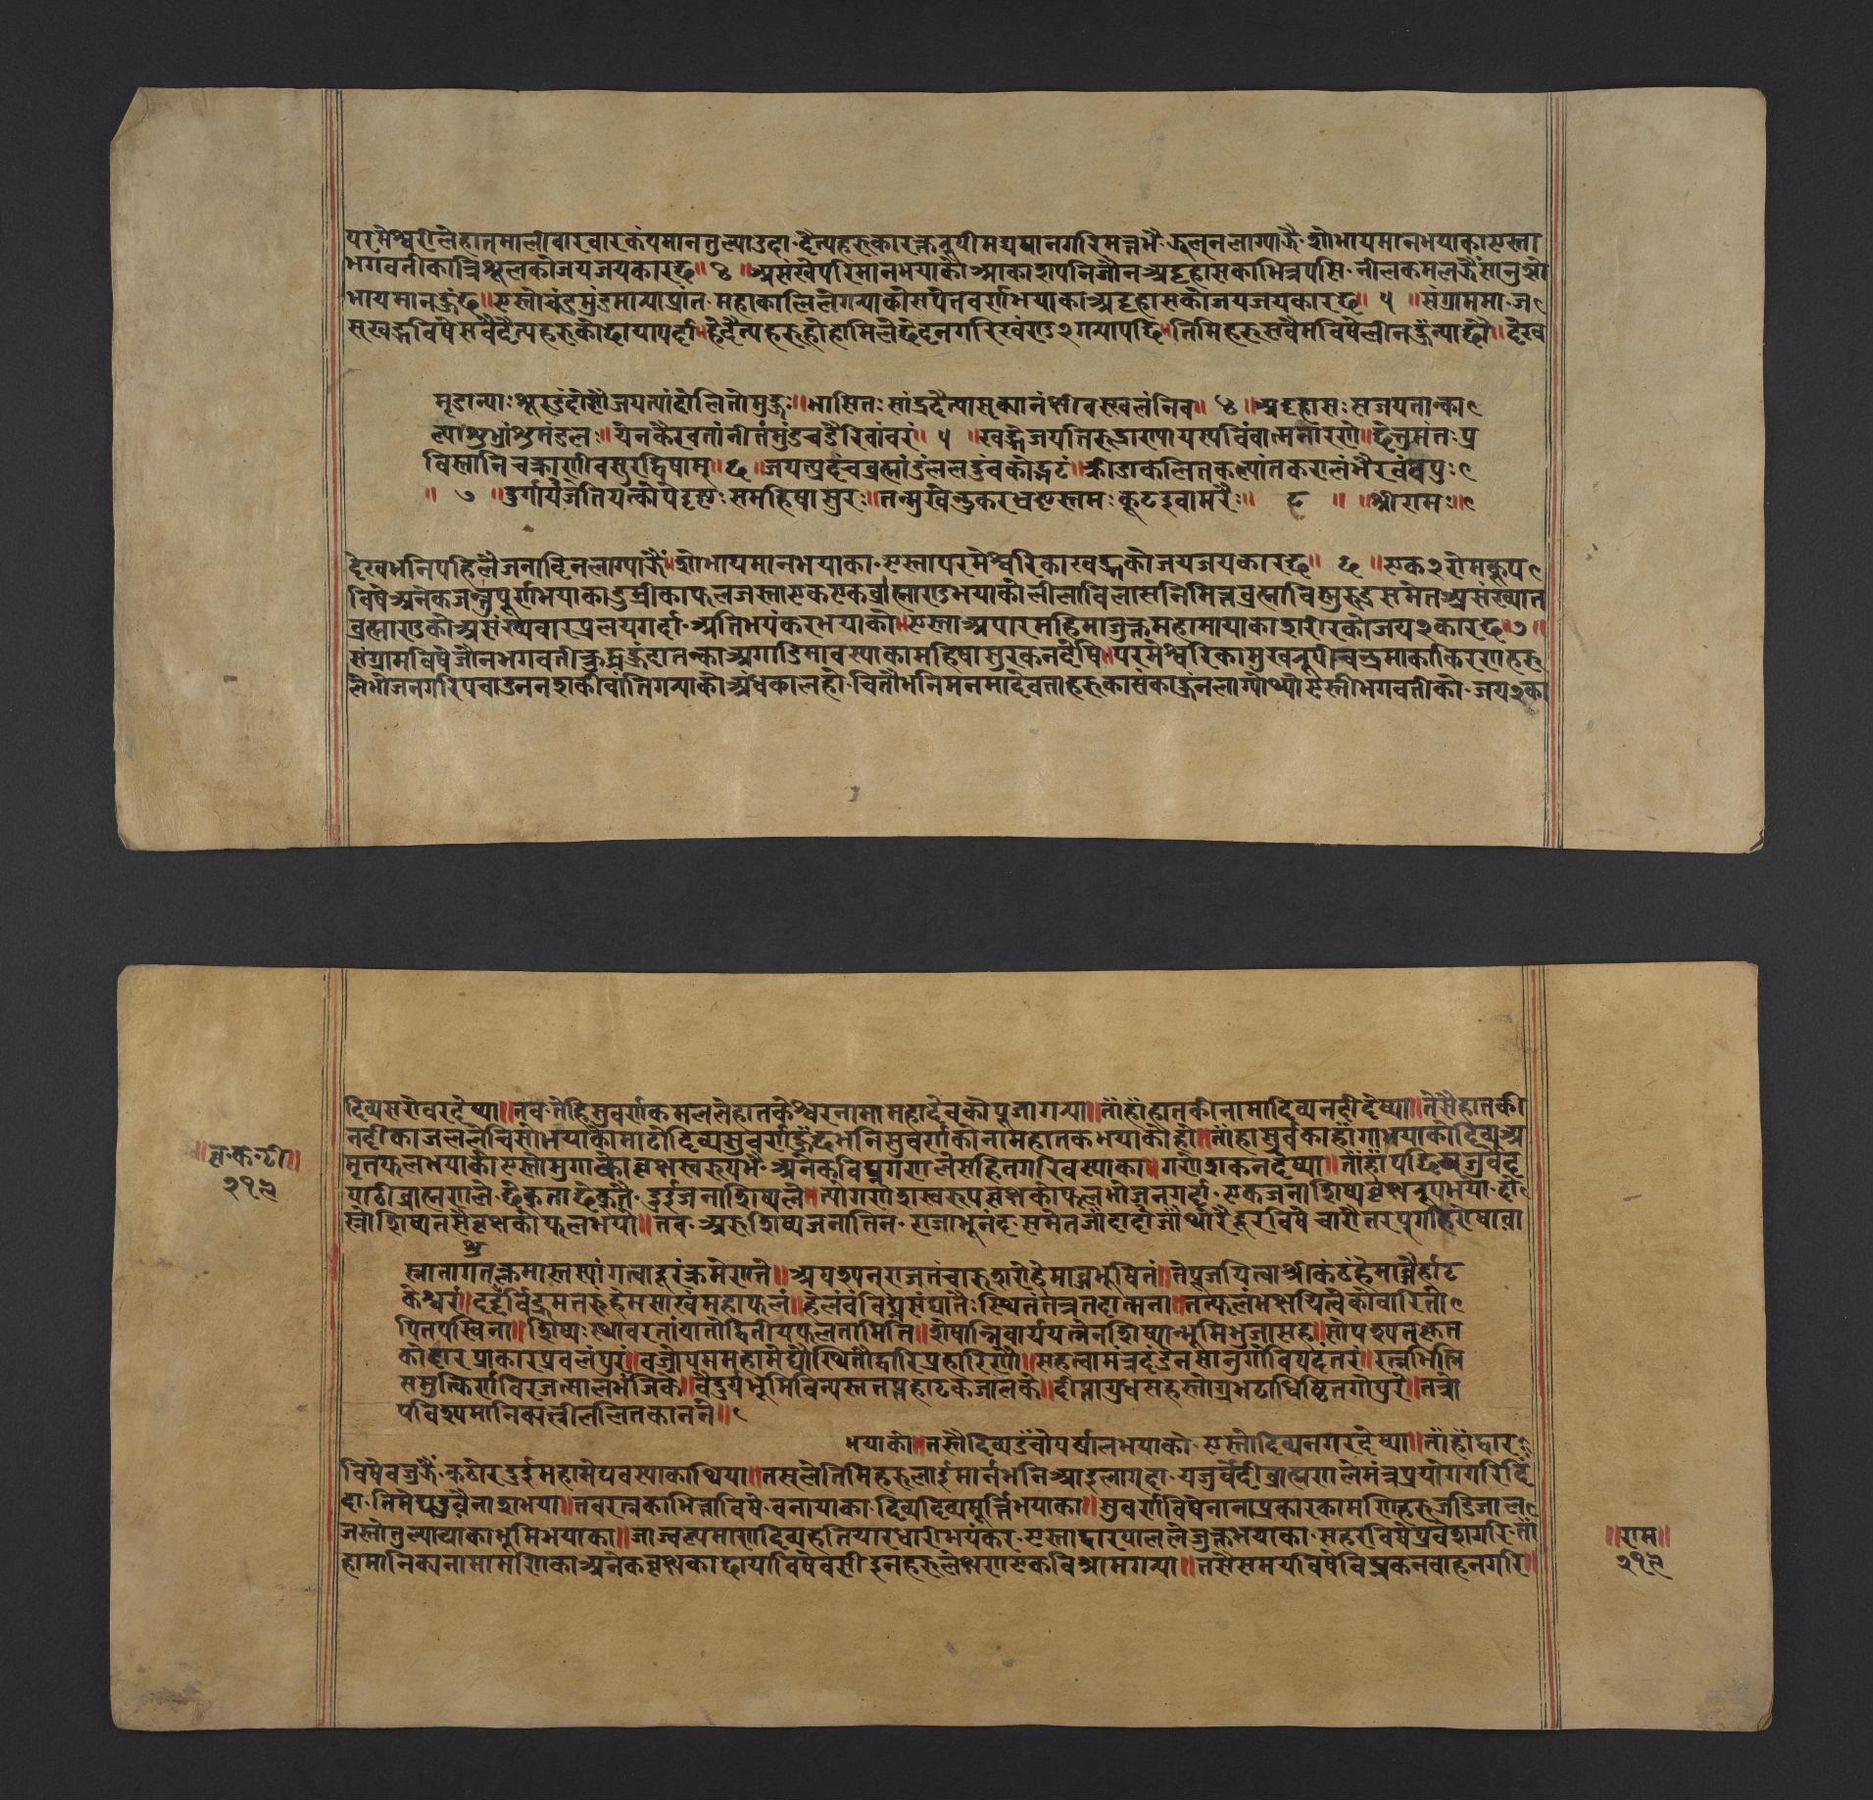 परमेश्वरीलेहातमालीवारवारकंपमानतुल्याउदा दैत्यहरुकारक्तरूपीमद्यपानगरिमत्तभै झुलनलाग्याझै शोभायमानभयाकाएस्ता
भगवतीकात्रिशूलकोजयजयकारछ॥ ४ ॥असंखेपरिमानभयाकोआकाशपनिजौनअट्टहासकाभित्रपसि नीलकमलझैंसानुशो
भायमानहुंछ॥एस्तोचंडमुंडमात्याप्रांत महाकालिलेगन्याकोसपेतवर्णभयाकाअट्टहासकोजयजयकारछ॥ ५ ॥संग्राममा ज
सखड्गविषेसवैदैत्यहरुकोछायापर्दा हेदैत्यहरुहोहामिलेछेदनगरिखंण्ड२गन्यापछि तिमिहरुसवैमविषेलीनहुंन्याछौ॥देख
मृडान्याः शूरुडंदोर्सौजयत्यांदोलितोमुहुः॥भासितः सांद्रदैत्यासृक्यानंक्षीवस्खलंनिव॥ ४ ॥अट्टहासः सजयतात्का
ल्याशुधांशुमंडलः॥येनकैरवतांनीतंमुंडचंडैरिवांवरं॥ ५ ॥खड्गोजयतिरुद्राण्यायस्यविंवात्मनांरणे॥छेत्तुमंतःप्र
विस्तानिचक्राणीवसुरद्विषाम्॥ ६ ॥जयत्प्रदंचव्रह्मांडंललडुंवकोद्भटं॥क्रीडाकेलितकल्पांतकरालंभैरवंवपुः
॥ ७ ॥दुर्गार्यजेतियत्कोपेदृष्टः समहिषासुरः॥तन्मुखेन्दुकरध्वस्तमः कूटइवामरैः॥ ८ ॥ ॥श्रीरामः॥
देखभनिपहिलैजनाविनलाग्याझैं शोभायमानभयाका एस्तापरमेश्वरिकाखड्गकोजयजयकारछ॥ ६ ॥एक२रोमकूप
विषेअनेकजन्तुपूर्णभयाकाडुम्रीकाफलजस्ताएकएकव्राह्माण्डभयाकोलीलाविलासनिमित्तव्रह्माविष्णुरुद्रसमेतअसंख्यात
व्रह्माण्डकोअसंख्यवारप्रलयगर्दा अतिभयंकरभयाको एस्ताअपारमहिमाजुक्तमहामायाकाशरीरकोजय२कारछ॥७॥
संग्रामविषेजौनभगवतीक्रुद्धहुंदातन्काअगाडिमावस्याकामहिषासुरकनदेषि परमेश्वरिकामुखरूपीचन्द्रमाकाकिरणहरु
लेभोजनगरिपचाउननशकीवांतिगन्याकोअंधकालहो चितौभनिमनमादेवताहरुकासंकाहुनलाग्योथ्योएस्तीभगवतीको जय२का
दिव्यसरोवरदेष्या॥तव तेहिसुवर्णकमलेलेहातकेश्वरनामामहादेवकोपुजागन्या॥तांहांहातकीनामादिव्यनदीदेष्या तेसैहातकी
नदीकाजललेचिसोभयाकोमाटोदिव्यसुवर्णहुंछभनिसुवर्णकोनामहातकभयाकोहो॥तांहासुर्वकाहांगाभयाकोदिव्यअ
मृतफलभयाकोएस्तोमुगाकोवृक्षस्वरुपभै अनेकविघ्नगणलेसहितगरिवस्याका गणेशकनदेष्या॥तांहांपछियजुर्वेद
पाठीव्राह्मणले छेकूताछेकूतै दुईजनाशिष्यले त्योगणेशस्वरूपवृक्षकोफलभोजनगर्दा एकजनाशिष्यवृक्षरूपभया दो
स्रोशिष्यतसैवृक्षकोफलभयो॥तव अरुशिष्यजनातिन राजाभूनंद समेतजांदाजांदा आंथोरैदूरविषे चारोैतरपुगीहरोषावा
॥वृ·क·टी॥
२१९
स्नातागतक्लमास्तस्यांगत्वादूरंक्रमेणते॥अपश्यनराजतंचारुशरीहेमाब्जभूषितं॥तेपूजयित्वाश्रीकंठंहेमाब्जैर्हाट
केश्वरं॥ददृर्विद्रुमतरुहेमसाखंमहाफलं॥हेलंवंविघ्नसंघातैः स्थितंतत्रतदात्मना॥तत्फलंभक्षयित्वैकोवारितो
पितपस्विना॥शिष्यः स्थावरतांयातोद्वितीयफलतामिति॥शेषान्निवार्ययत्नेनशिष्यान्भूमिभुजासह॥सोपश्यत्नुक्तत
कोद्दारप्राकारप्रवलंपुरं॥वज्रोपममहामेघौस्थितौद्वारिप्रहारिणौ॥सहत्वामंत्रदंडेनसानुगोविपदंतरं॥रत्नभित्ति
समुत्किर्णविरजत्सालभंजिके॥वैदुर्यभूमिविन्यस्ततप्तहाटकजालके॥दीप्तायुधसहस्त्रोग्रभटाधिष्टितगोपुरे॥तत्रो
पविश्यमानिक्यत्वीललितकानने॥
भयाको तस्तैदिव्यउंचोपर्षालभयाको एस्तोदिव्यनगरदेष्या॥तांहांद्वार
विषेवज्रझैं कठोरदुईमहामेघवस्याकाथिया॥तसलेतिमिहरुलाईमार्नभनिआउलागदा यजुर्वेदीव्राह्मणलेमंत्रप्रयोगगरिदिं
दा तिमेघदुवैनाशभया॥तवरत्नकाभित्ताविषे वनायाका दिव्यदिव्यमूर्त्तिभयाका सुवर्णविषेनानाप्रकारकामणिहरुजडिजाल
जस्तोतुल्यायाकाभूमिभयाका॥जाज्वल्यमाणदिव्यहतियारधारीभयंकर एस्ताद्वारपाललेजुक्तभयाका सहरविषेप्रवेशगरि तां
हामानिक्यनामामणिकाअनेकवृक्षकाछायाविषेवसीइनहरुलेक्षणएकविश्रामगन्या॥तसैसमयविषेविघ्नकनवाहनगरि
॥राम॥
२१९